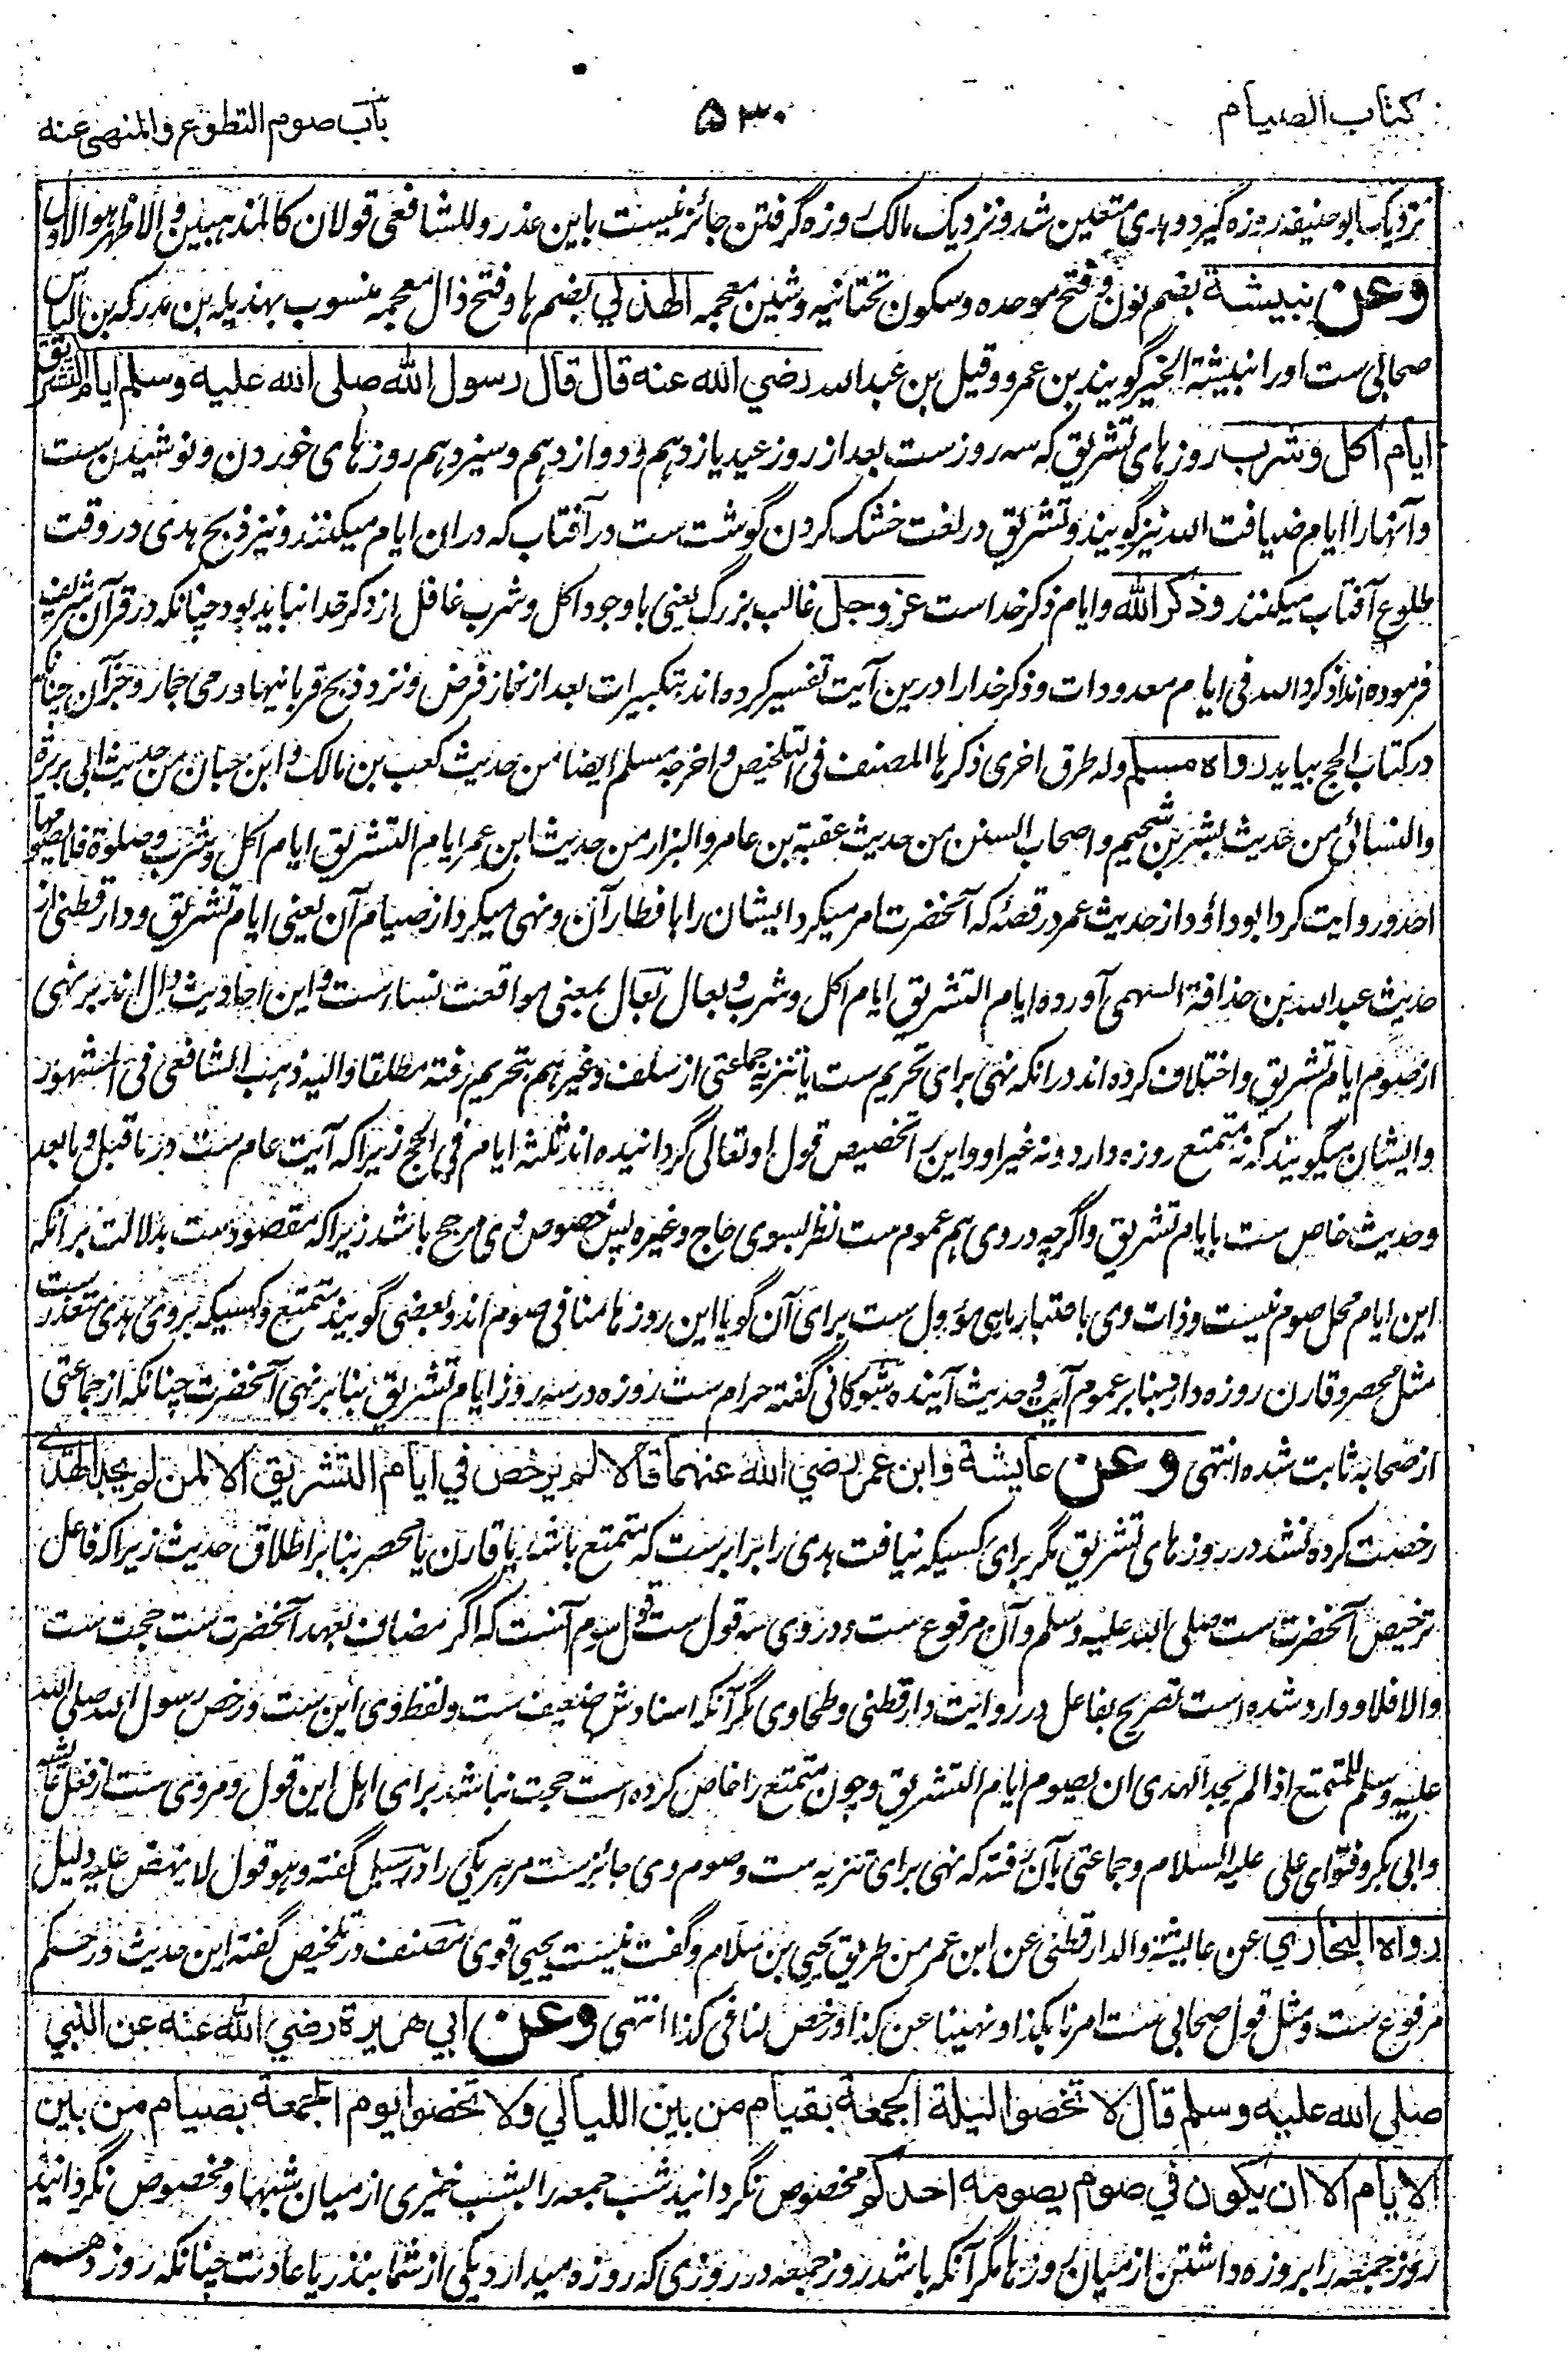 كتاب الصيام
۵۳۰
باب صوم التطوع والمنهي عنه
نزدیک ابو حنیفه روزه گیرد و هدی متعین شد و نزدیک مالک روزه گرفتن جائز نیست باین عذر و للشافعی قولان کالمذهبین و الاظهر هو الاول
وعن نبيشة بضم نون و فتح موحده و سکون تحتانیه و شین معجمه الهذلي بضم ها و فتح ذال معجمه منسوب بهذیله بن مدرکه بن الیاس
صحابی ست او را نبیشة الخیر گویند بن عمرو و قیل بن عبدالله رضي الله عنه قال قال رسول الله صلى الله عليه وسلم ايام التشريق
ايام اكل وشرب روزهای تشریق که سه روز ست بعد از روز عید یازدهم و دوازدهم و سیزدهم روزهای خوردن و نوشیدن ست
و آنها را ایام ضیافت الله نیز گویند و تشریق در لغت خشک کردن گوشت ست در آفتاب که دران ایام میکنند و نیز ذبح هدی در وقت
طلوع آفتاب میکنند وذكر الله و ایام ذکر خدا است عز وجل غالب بزرگ یعنی با وجود اکل و شرب غافل از ذکر خدا نباید بود چنانکه در قرآن شریف
فرموده اند اذکروا الله فی ایام معدودات و ذکر خدا را درین آیت تفسیر کرده اند بتکبیرات بعد از نماز فرض و نزد ذبح قربانیها و رمی جمار و جز آن چنانکه
در کتاب الحج بیاید رواه مسلم وله طرق اخری ذکرها المصنف فی التلخیص و اخرجه مسلم ایضا من حدیث کعب بن مالک و ابن حبان من حدیث ابی هریرة
والنسائی من حدیث بشر بن سحیم و اصحاب السنن من حدیث عقبة بن عامر والبزار من حدیث ابن عمر ایام التشریق ایام اکل و شرب و صلوة فلا یصومها
احد و روایت کرد ابو داؤد از حدیث عمر در قصه که آنحضرت امر میکرد ایشان را بافطار آن و نهی میکرد از صیام آن یعنی ایام تشریق و دارقطنی از
حدیث عبدالله بن حذافة السهمی آورده ایام التشریق ایام اکل و شرب و بعال بعال بمعنی مواقعت نسا ست و این احادیث دال اند بر نهی
از صوم ایام تشریق و اختلاف کرده اند در آنکه نهی برای تحریم ست یا تنزیه جماعتی از سلف و غیرهم بتحریم رفته مطلقا و الیه ذهب الشافعی فی المشهور
و ایشان میگویند که نه متمتع روزه دارد و نه غیر او و این را تخصیص قول او تعالی گردانیده اند ثلثة ایام فی الحج زیرا که آیت عام ست در ما قبل و ما بعد
و حدیث خاص ست بایام تشریق و اگرچه در وی هم عموم ست نظر بسوی حاج و غیره پس خصوص وی مرجح باشد زیرا که مقصود ست بدلالت بر آنکه
این ایام محل صوم نیست و ذات وی باعتبار ما هی مؤول ست برای آن گویا این روزها منافی صوم اند و بعضی گویند متمتع و کسیکه بروی هدی متعذر ست
مثل محصر و قارن روزه دارد بنا بر عموم آیت و حدیث آینده شوکانی گفته حرام ست روزه در سه روز ایام تشریق بنا بر نهی آنحضرت چنانکه از جماعتی
از صحابه ثابت شده انتهی وعن عايشة وابن عمر رضي الله عنهما قالا لم يرخص في ايام التشريق الا لمن لم يجد الهدي
رخصت کرده نشد در روزهای تشریق مگر برای کسیکه نیافت هدی را برابر ست که متمتع باشد یا قارن یا محصر بنا بر اطلاق حدیث زیرا که فاعل
ترخیص آنحضرت ست صلی الله علیه وسلم و آن مرفوع ست و در وی سه قول ست قول سوم آنست که اگر مضاف بعهد آنحضرت ست حجت ست
والا فلا و وارد شده است تصریح بفاعل در روایت دارقطنی و طحاوی مگر آنکه اسنادش ضعیف ست و لفظ وی این ست و رخص رسول الله صلی الله
علیه وسلم للمتمتع اذا لم یجد الهدی ان یصوم ایام التشریق و چون متمتع را خاص کرده است حجت نباشد برای اهل این قول و مروی ست از فعل عایشه
و ابی بکر و فتوای علی علیه السلام و جماعتی بآن رفته که نهی برای تنزیه ست و صوم وی جائز ست مر هر یکی را در سبل گفته و هو قول لا ینهض علیه دلیل
رواه البخاري عن عایشة و الدارقطنی عن ابن عمر من طریق یحیی بن سلام و گفت نیست یحیی قوی مصنف در تلخیص گفته این حدیث در حکم
مرفوع ست و مثل قول صحابی ست امرنا بکذا و نهینا عن کذا و رخص لنا فی کذا انتهی وعن ابي هريرة رضي الله عنه عن النبي
صلى الله عليه وسلم قال لا تخصوا ليلة الجمعة بقيام من بين الليالي ولا تخصوا يوم الجمعة بصيام من بين
الايام الا ان يكون في صوم يصومه احدكم مخصوص نگردانید شب جمعه را بشب خیزی از میان شبها و مخصوص نگردانید
روز جمعه را بروزه داشتن از میان روزها مگر آنکه باشد روز جمعه در روزی که روزه میدارد یکی از شما بنذر یا عادت چنانکه روز دهم